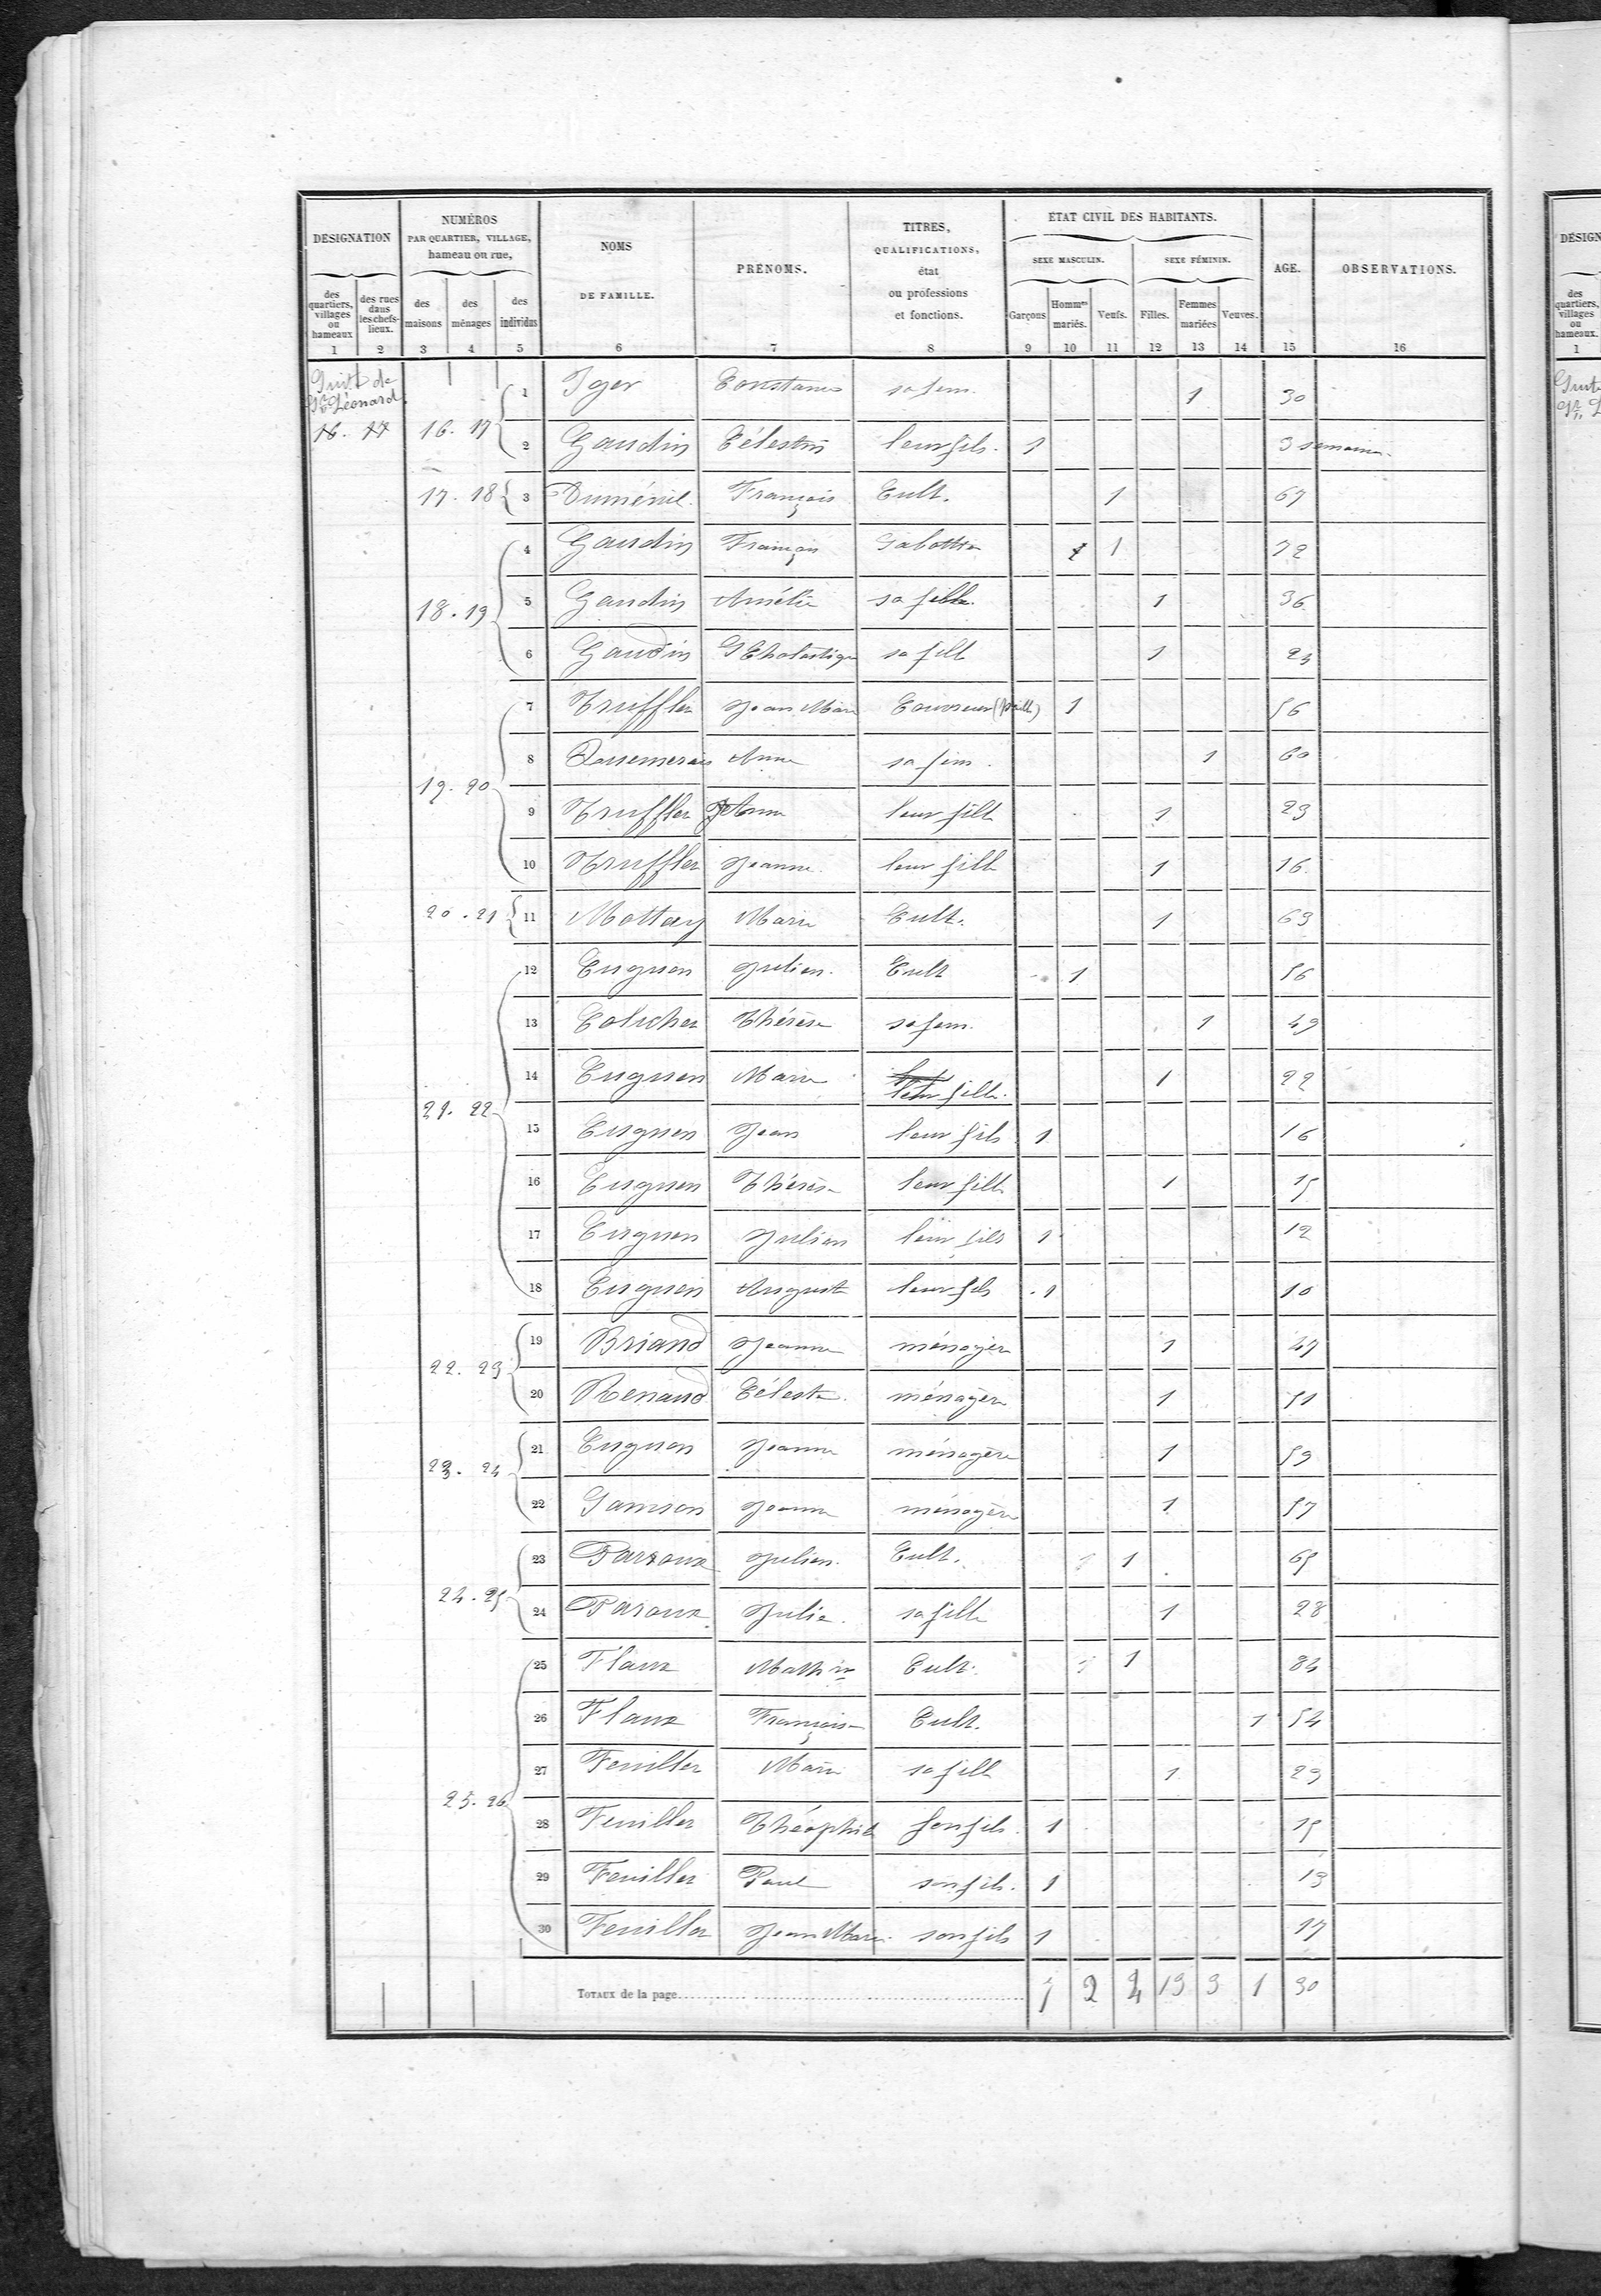 DÉSIGNATION
NUMÉROS
PAR QUARTIER, VILLAGE,
hameau ou rue,
NOMS
DE FAMILLE.
PRÉNOMS.
TITRES,
QUALIFICATIONS,
état
ou professions
et fonctions.
ÉTAT CIVIL DES HABITANTS.
SEXE MASCULIN.
SEXE FÉMININ.
AGE.
OBSERVATIONS.
des quartiers, villages ou hameaux
des rues dans les chefs-lieux.
des maisons
des ménages
des individus
Garçons
Hommes mariés.
Veufs.
Filles.
Femmes mariées
Veuves.
1 2 3 4 5 6 7 8 9 10 11 12 13 14 15 16
Suite de
St Léonard
16. 17 16. 17
1 Iger Constance sa fem. 1 30
2 Gaudin Célestin leur fils. 1 3 semaines
17. 18 3 Duménil François Cult. 1 67
4 Gaudin François Sabottier 1 1 72
18. 19 5 Gaudin Amélie sa fille. 1 36
6 Gaudin Scholastique sa fille 1 24
7 Truffler Jean Marie Couvreur (paille) 1 56
8 Anne sa fem. 1 60
19. 20
9 Truffler Anne leur fille 1 23
10 Truffler Jeanne leur fille 1 16
20. 21 11 Mottay Marie Cult. 1 63
12 Cugnen Julien. Cult 1 56
13 Colichet Thérèse sa fem. 1 49
14 Cugnen Marie leur fille. 1 22
21. 22
15 Cugnen Jean leur fils 1 16
16 Cugnen Thérèse leur fille 1 15
17 Cugnen Julien leur fils 1 12
18 Cugnen Auguste leur fils 1 10
19 Briand Jeanne ménagère 1 47
22. 23
20 Renaud Céleste ménagère 1 51
21 Cugnen Jeanne ménagère 1 59
23. 24
22 Samson Jeanne ménagère 1 57
23 Parroux Julien. Cult. 1 65
24. 25
24 Paroux Julie. sa fille 1 28
25 Flaux Mathin Cult. 1 84
26 Flaux Françoise Cult. 1 54
27 Feuillet Marie sa fille 1 23
25. 26
28 Feuillet Théophile son fils. 1 15
29 Feuillet Paul son fils. 1 13
30 Feuillet Jean Marie son fils 1 17
TOTAUX de la page 7 2 4 13 3 1 30
DÉSIGN
des quartiers, villages ou hameaux.
1